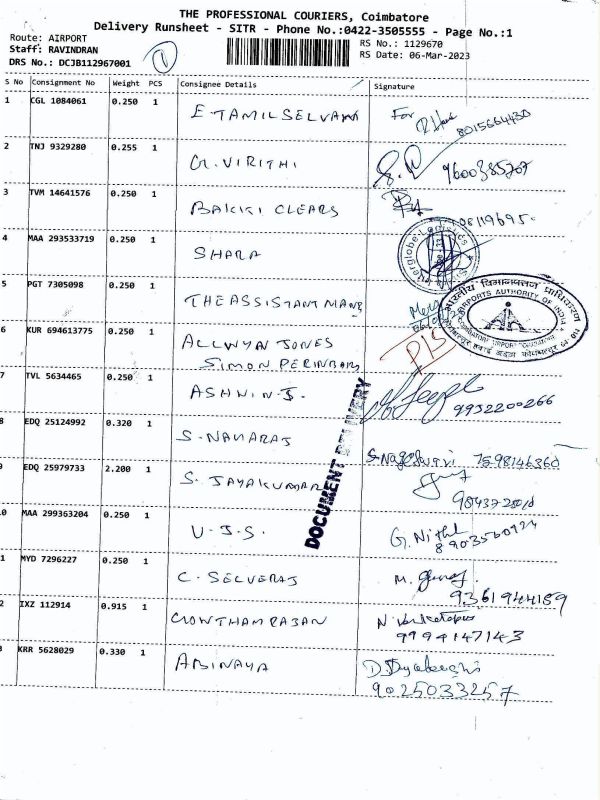 THE PROFESSIONAL COURIERS, Coimbatore
Delivery Runsheet - SITR - Phone No.:0422-3505555 - Page No.:1
Route: AIRPORT
Staff: RAVINDRAN
DRS No.: DCJB112967001
1
RS No.: 1129670
RS Date: 06-Mar-2023
S No Consignment No Weight PCS Consignee Details Signature
1 CGL 1084061 0.250 1 E TAMILSELVAN For 8015664430
2 TNJ 9329280 0.255 1 G.VIRITHI 9600385707
3 TVM 14641576 0.250 1
4 MAA 293533719 0.250 1 SHARA
5 PGT 7305098 0.250 1 THE ASSISTANT MANE
AIRPORTS AUTHORITY OF INDIA
6 KUR 694613775 0.250 1 ALLWYN JONES
SIMON PERINBAM
7 TVL 5634465 0.250 1 ASHWIN.J. 9932200266
8 EDQ 25124992 0.320 1 S.NAGARAJ S.Nageswari 7598146360
9 EDQ 25979733 2.200 1 S. JAYAKUMAR
DOCUMENT DELIVERY
0 MAA 299363204 0.250 1 V.J.S. G.Nithl 8903560924
1 MYD 7296227 0.250 1 C. SELVERAJ M. 9361944189
2 IXZ 112914 0.915 1 GOWTHAMRAJAN N. 9994147143
3 KRR 5628029 0.330 1 ABINAYA 9025033257